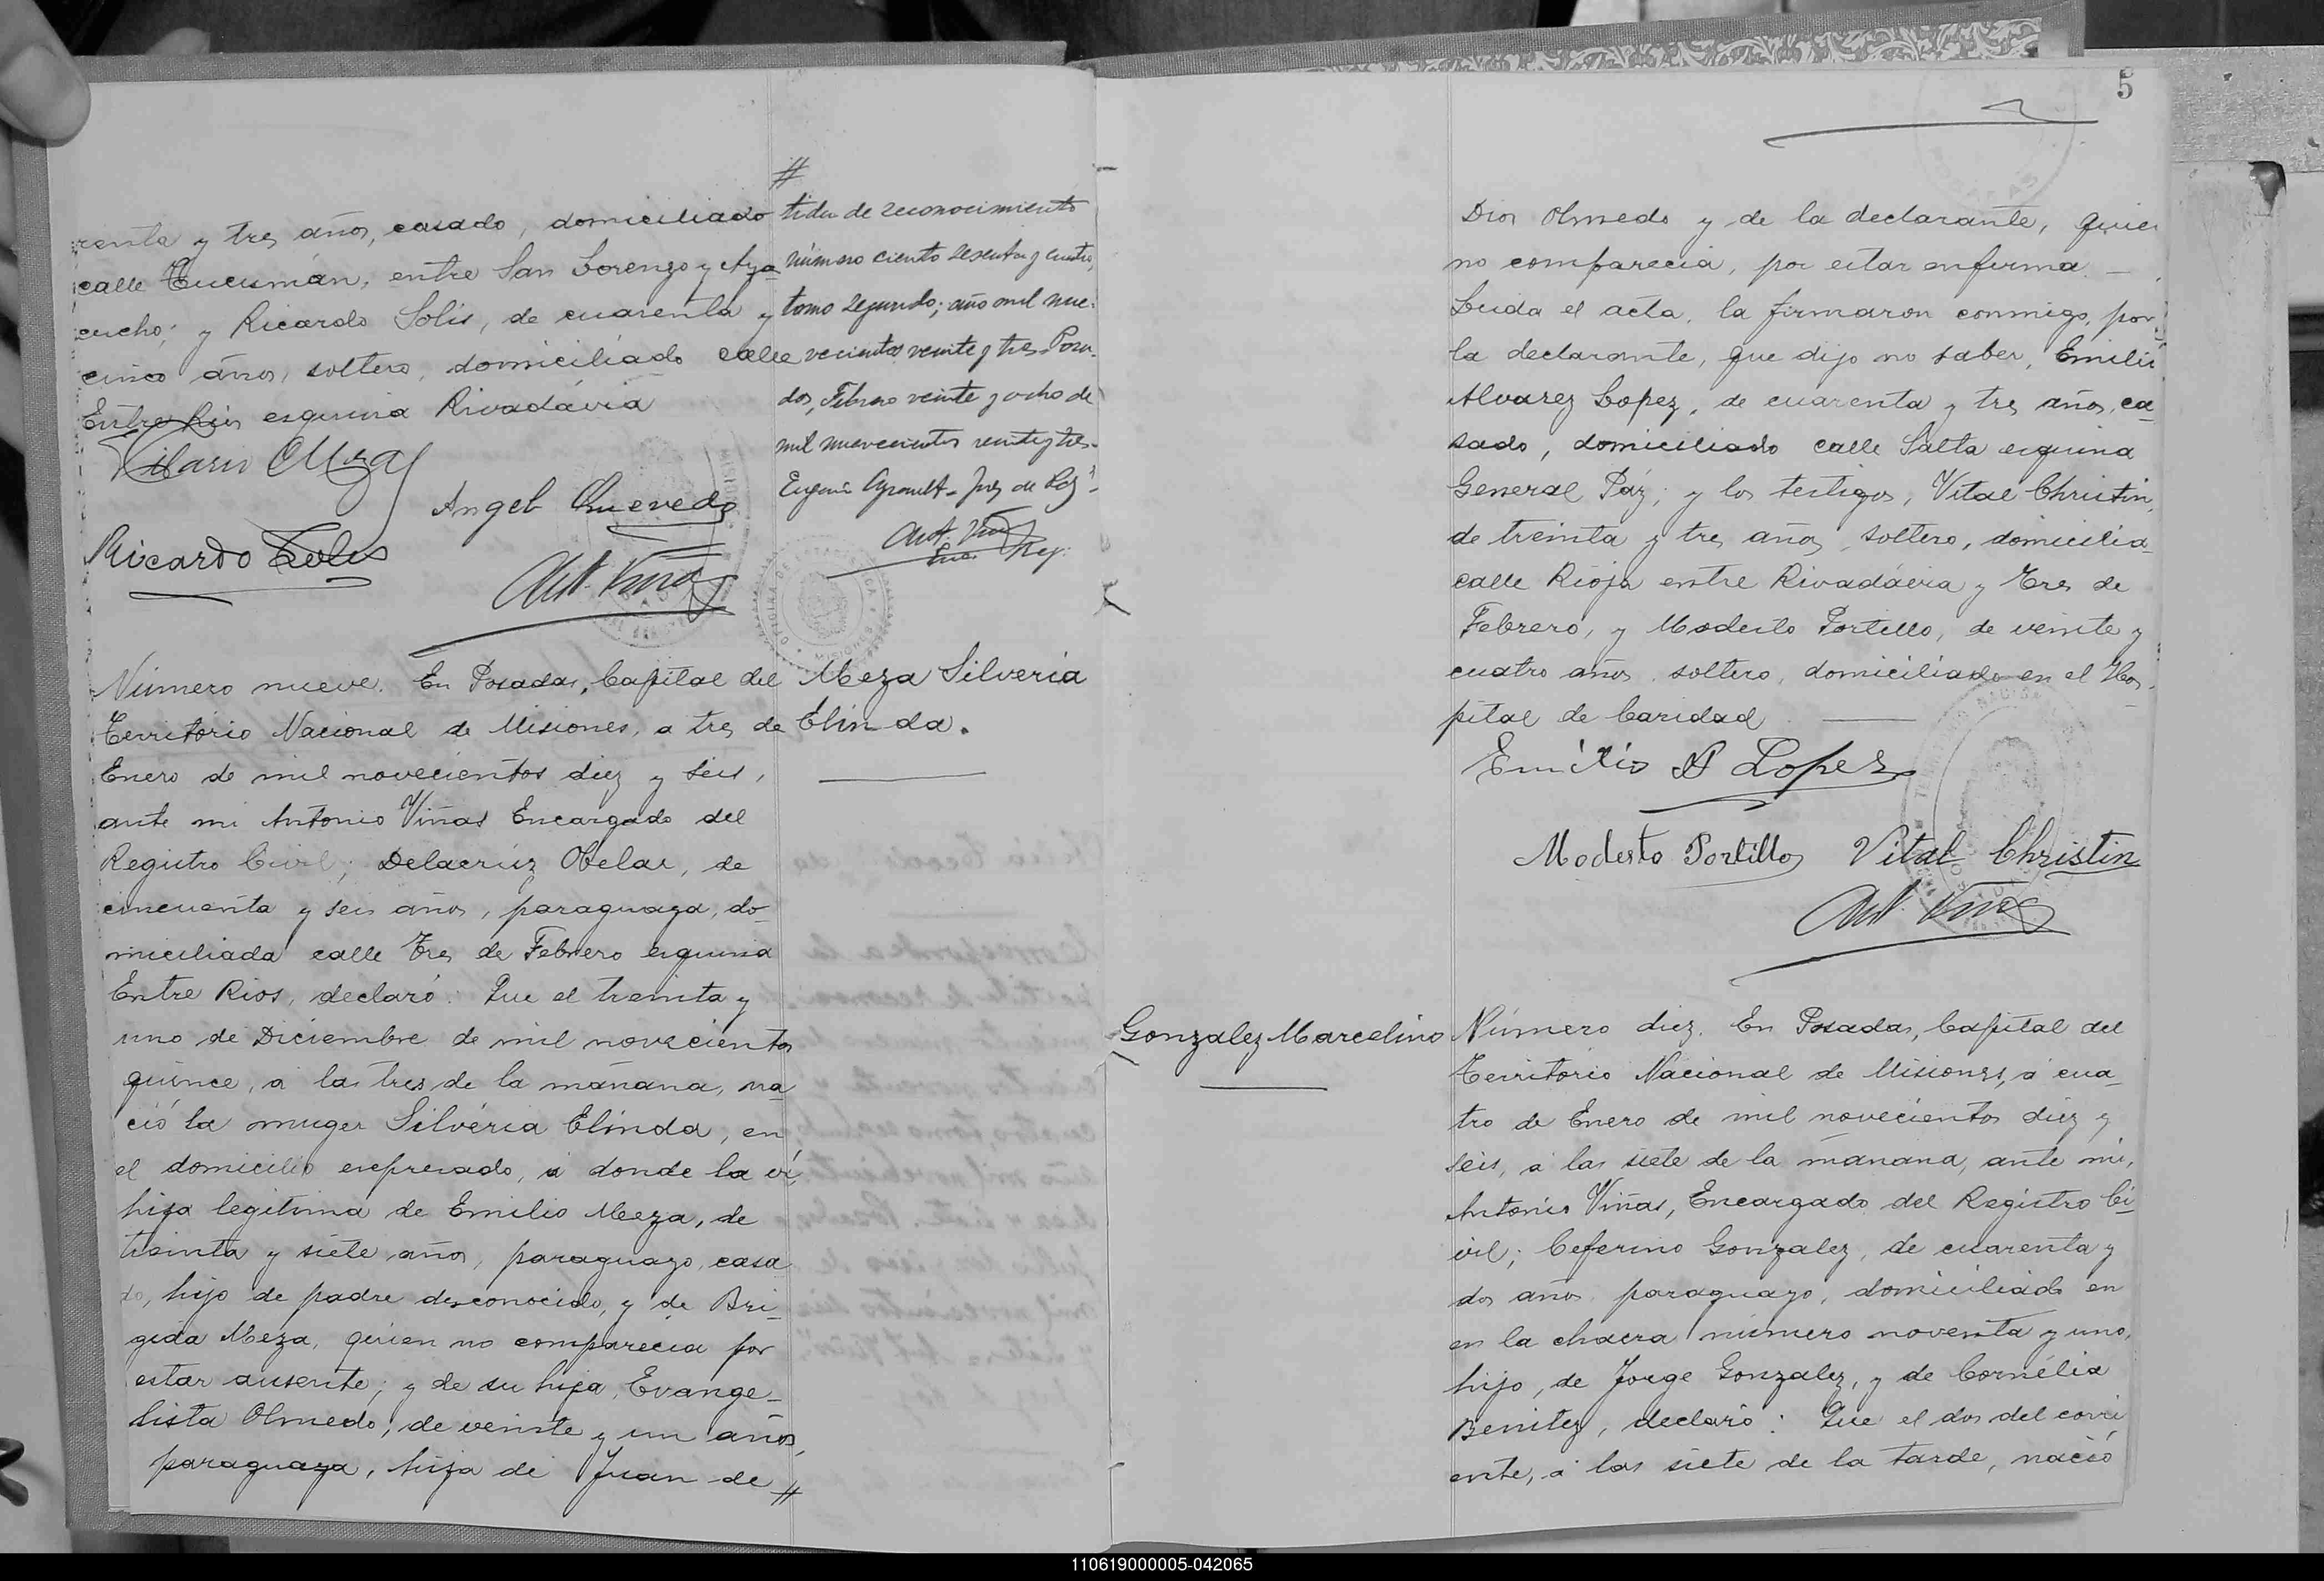 renta y tres años, casado, domiciliado
calle Tucumán, entre San Lorenzo y Aya
cucho; y Ricardo Solis, de cuarenta y
cinco años, soltero, domiciliado calle
Entre Rios esquina Rivadávia
Hilario Meza
Angel Quevedo
Ricardo Solis
Ant. Viñas
#
tida de reconocimiento
número ciento sesenta y cuatro,
tomo segundo; año mil nue-
vecientos veinte y tres. Posa-
das, Febrero veinte y ocho de
mil nuevecientos veinte y tres.
Eugenio Juez de Paz
Ant. Viñas
Enc. Reg.
Número nueve. En Posadas, Capital del
Território Nacional de Misiones, a tres de
Enero de mil novecientos diez y seis,
ante mi Antonio Viñas Encargado del
Registro Civil; Delacrúz Obelar, de
cincuenta y seis años, paraguaya, do-
miciliada calle Tres de Febrero esquina
Entre Rios, declaró: Que el treinta y
uno de Diciembre de mil novecientos
quince, a las tres de la mañana, na
ció la muger Silvéria Elinda, en
el domicilio expresado, a donde la ví,
hija legítima de Emilio Meza, de
treinta y siete años, paraguayo, casa
do, hijo de padre desconocido, y de Bri-
gida Meza, quien no comparecia por
estar ausente; y de su hija, Evange-
lista Olmedo, de veinte y un años,
paraguaya, hija de Juan de #
Meza Silveria
Elinda.
5
Dios Olmedo y de la declarante, quien
no comparecia, por estar enferma.
Leida el acta, la firmaron conmigo, por
la declarante, que dijo no saber, Emilio
Alvarez Lopez, de cuarenta y tres años, ca-
sado, domiciliado calle Salta esquina
General Páz; y los testigos, Vital Christin,
de treinta y tres años, soltero, domicilia-
calle Rioja entre Rivadávia y Tres de
Febrero, y Modesto Portillo, de veinte y
cuatro años, soltero, domiciliado en el Hos-
pital de Caridad
Emilio A Lopez
Modesto Portillo Vital Christin
Ant. Viñas
Gonzalez Marcelino
Número diez. En Posadas, Capital del
Território Nacional de Misiones, a cua-
tro de Enero de mil novecientos diez y
seis, a las siete de la mañana, ante mi,
Antonio Viñas, Encargado del Registro Ci-
vil; Ceferino Gonzalez, de cuarenta y
dos años paraguayo, domiciliado en
en la chacra número noventa y uno,
hijo, de Jorge Gonzalez, y de Cornélia
Benitez, declaró: Que el dos del corri
ente, a las siete de la tarde, nació
110619000005-042065